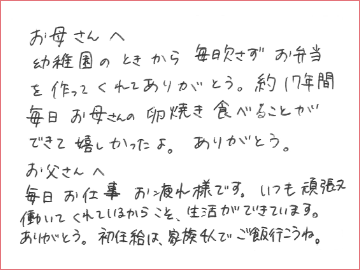 お母さんへ
幼稚園のときから 毎日欠さず お弁当
を作ってくれてありがとう。約17年間
毎日お母さんの卵焼き食べることが
できて嬉しかったよ。ありがとう。
お父さんへ
毎日お仕事お疲れ様です。いつも頑張って
働いてくれているからこそ、生活ができています。
ありがとう。初任給は、家族4人でご飯行こうね。